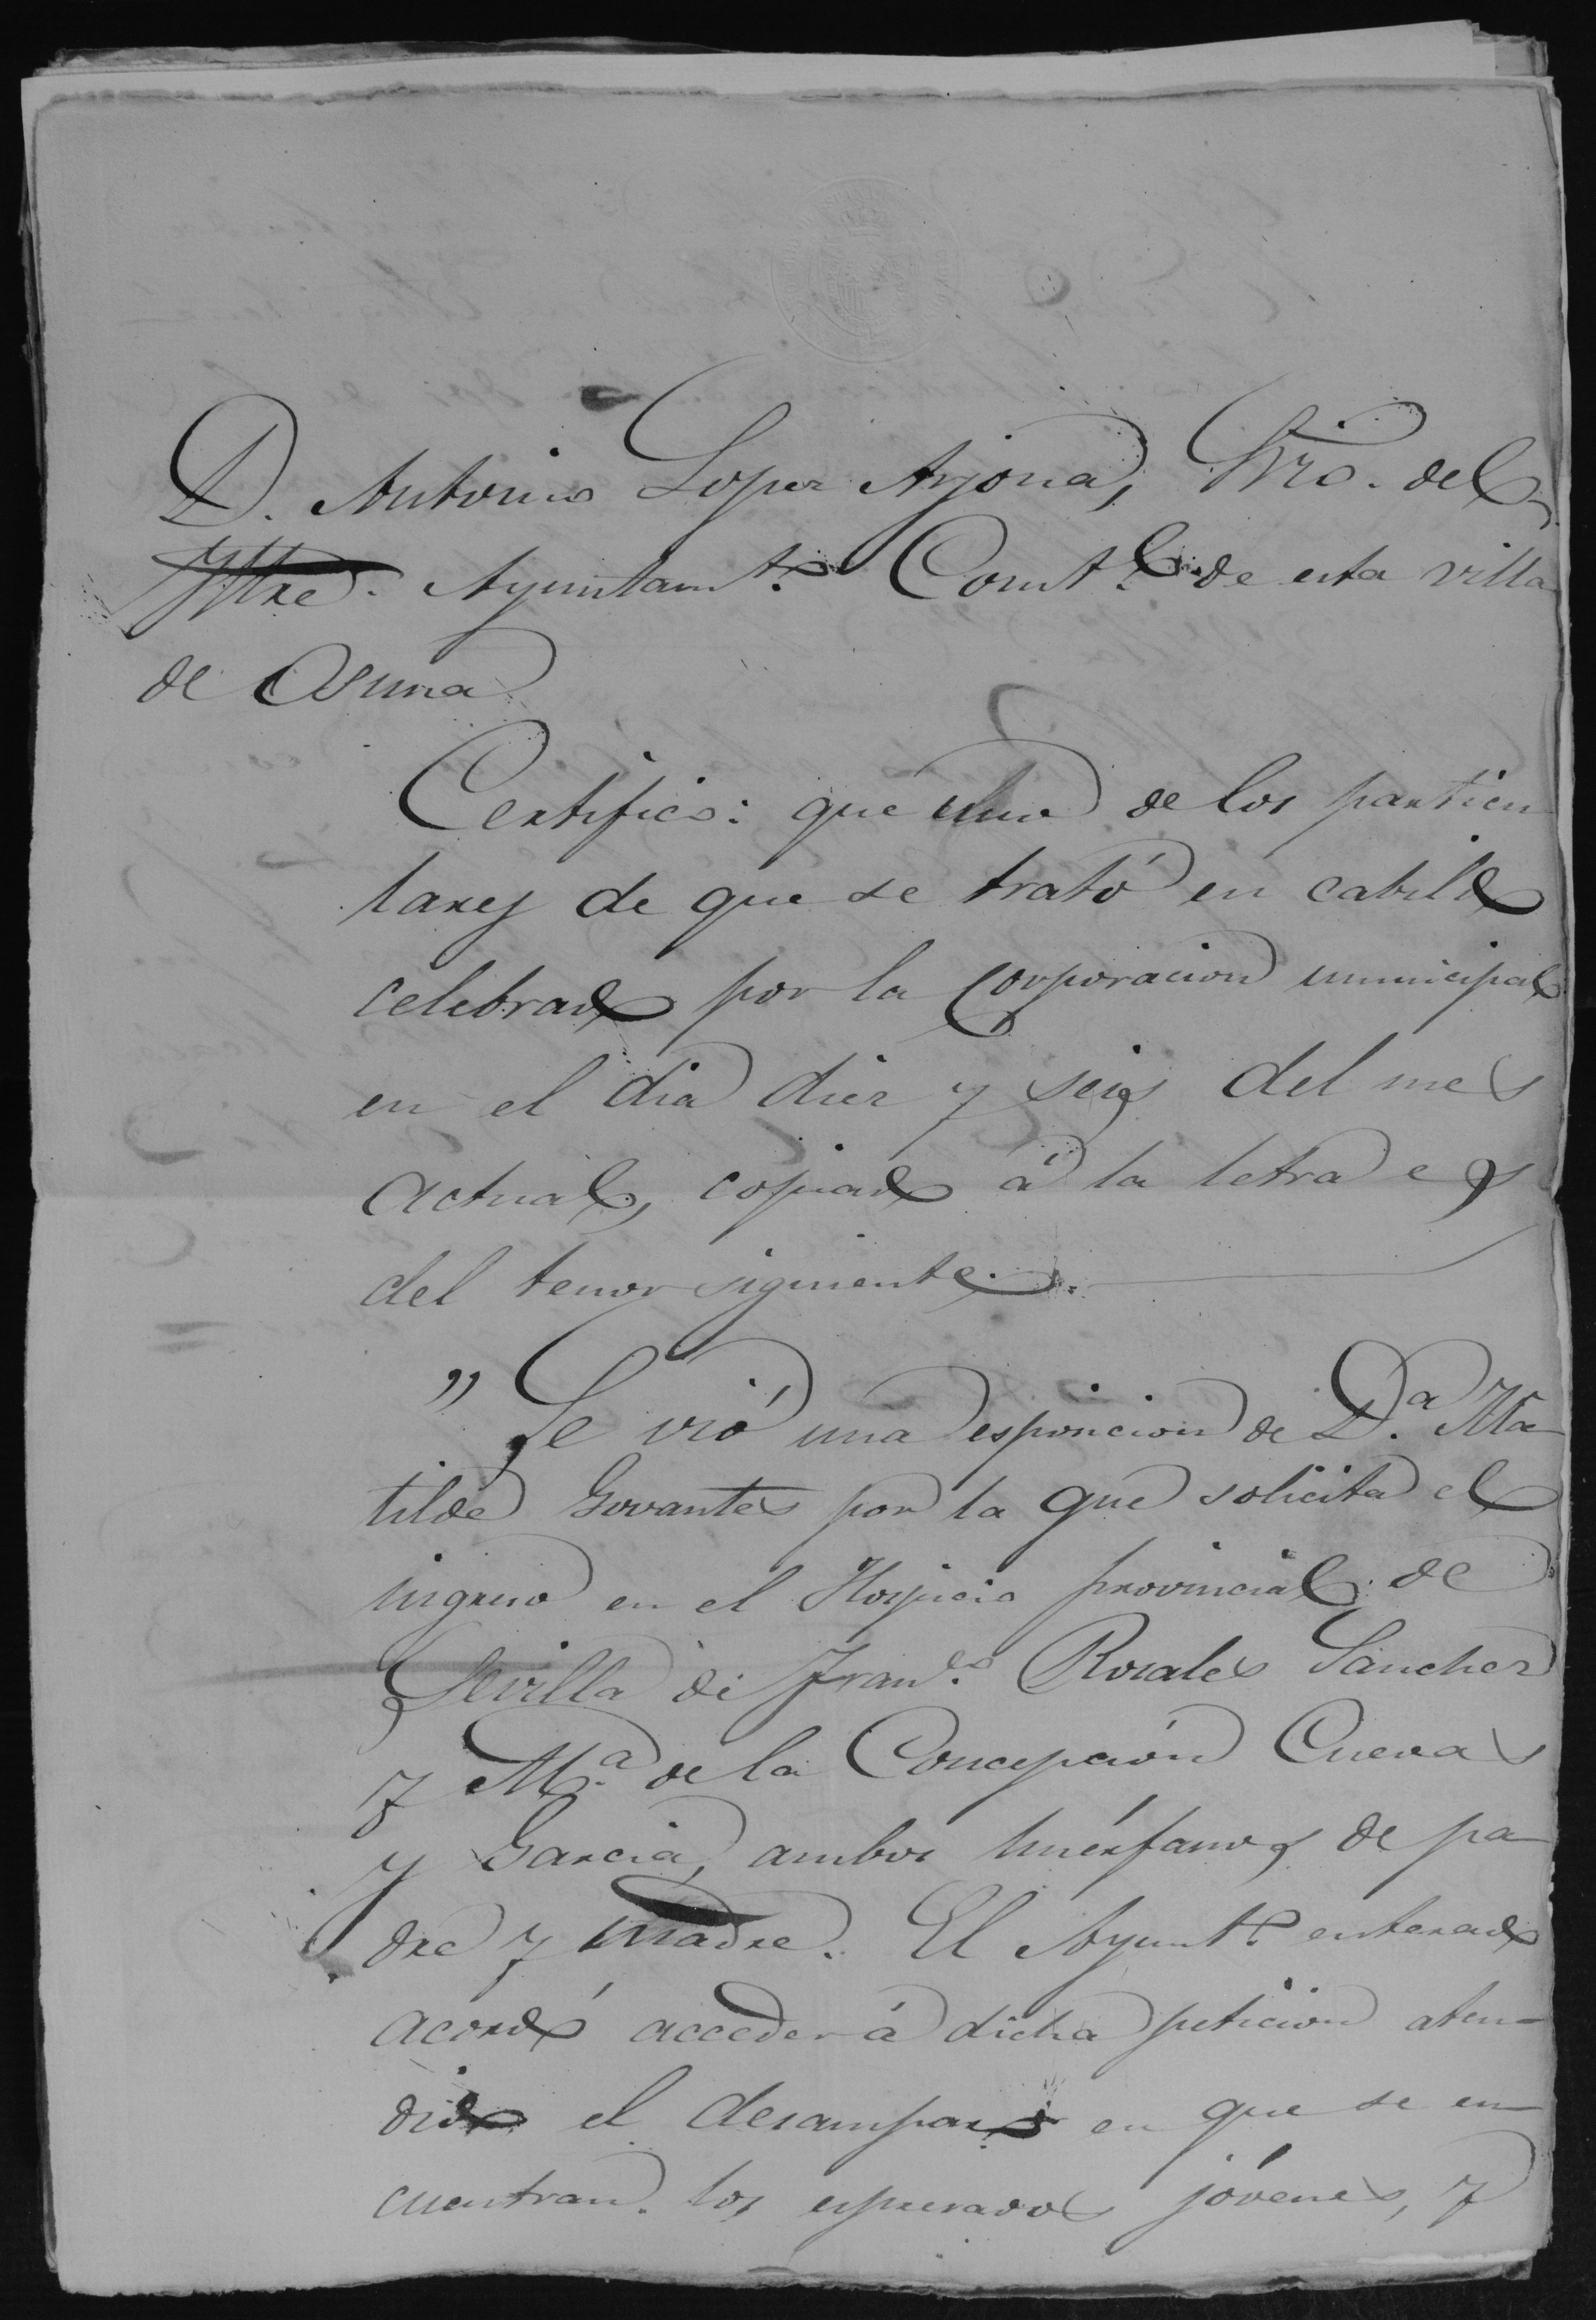 D. Antonio Lopez Arjona, Srio. del
Iltre. Ayuntamto. Constl. de esta villa
de Osuna
Certifico: que uno de los particu
lares de que se trató en cabildo
celebrado por la Corporacion municipal
en el dia diez y seis del mes
actual, copiado á la letra es
del tenor siguiente.
"Se vió una esposicion de Da. Ma
tilde Govantes por la que solicita el
ingreso en el Hospicio provincial de
Sevilla de Franco. Rosales Sanchez
y Ma. de la Concepción Cuevas
y Garcia, ambos huérfanos de pa
dre y madre. El Ayunto. enterado
acordó acceder á dicha peticion aten-
dido el desamparo en que se en-
cuentran los espresados jóvenes, y